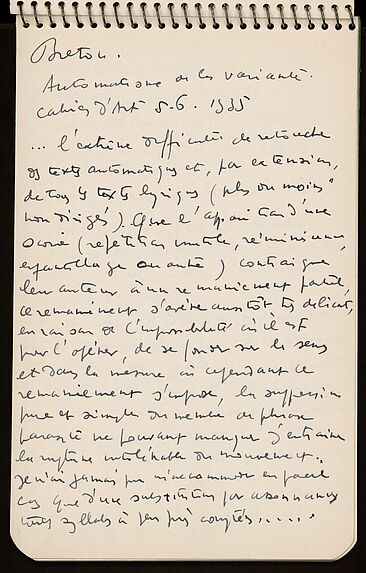 Breton.
Automatisme de la variante.
Cahiers d'Art 5-6. 1935
... l'extrême difficulté de retouche
des textes automatiques et, par extension,
de tous les textes lyriques (plus ou moins
non dirigés). Que l'apparition d'une
scorie (répétition inutile, réminiscence,
enfantillage ou autre) contraigne
leur auteur à un remaniement partiel,
ce remaniement s'avère aussitôt très délicat,
en raison de l'impossibilité où il est
pour l'opérer, de se fonder sur le sens
et dans la mesure où cependant ce
remaniement s'impose, la suppression
pure et simple du membre de phrase
parasite ne pouvant manquer d'entraîner
la rupture intolérable du mouvement.
je n'ai jamais pu m'accommoder en pareil
cas que d'une substitution par assonances
syllabes à peu près comptés.....